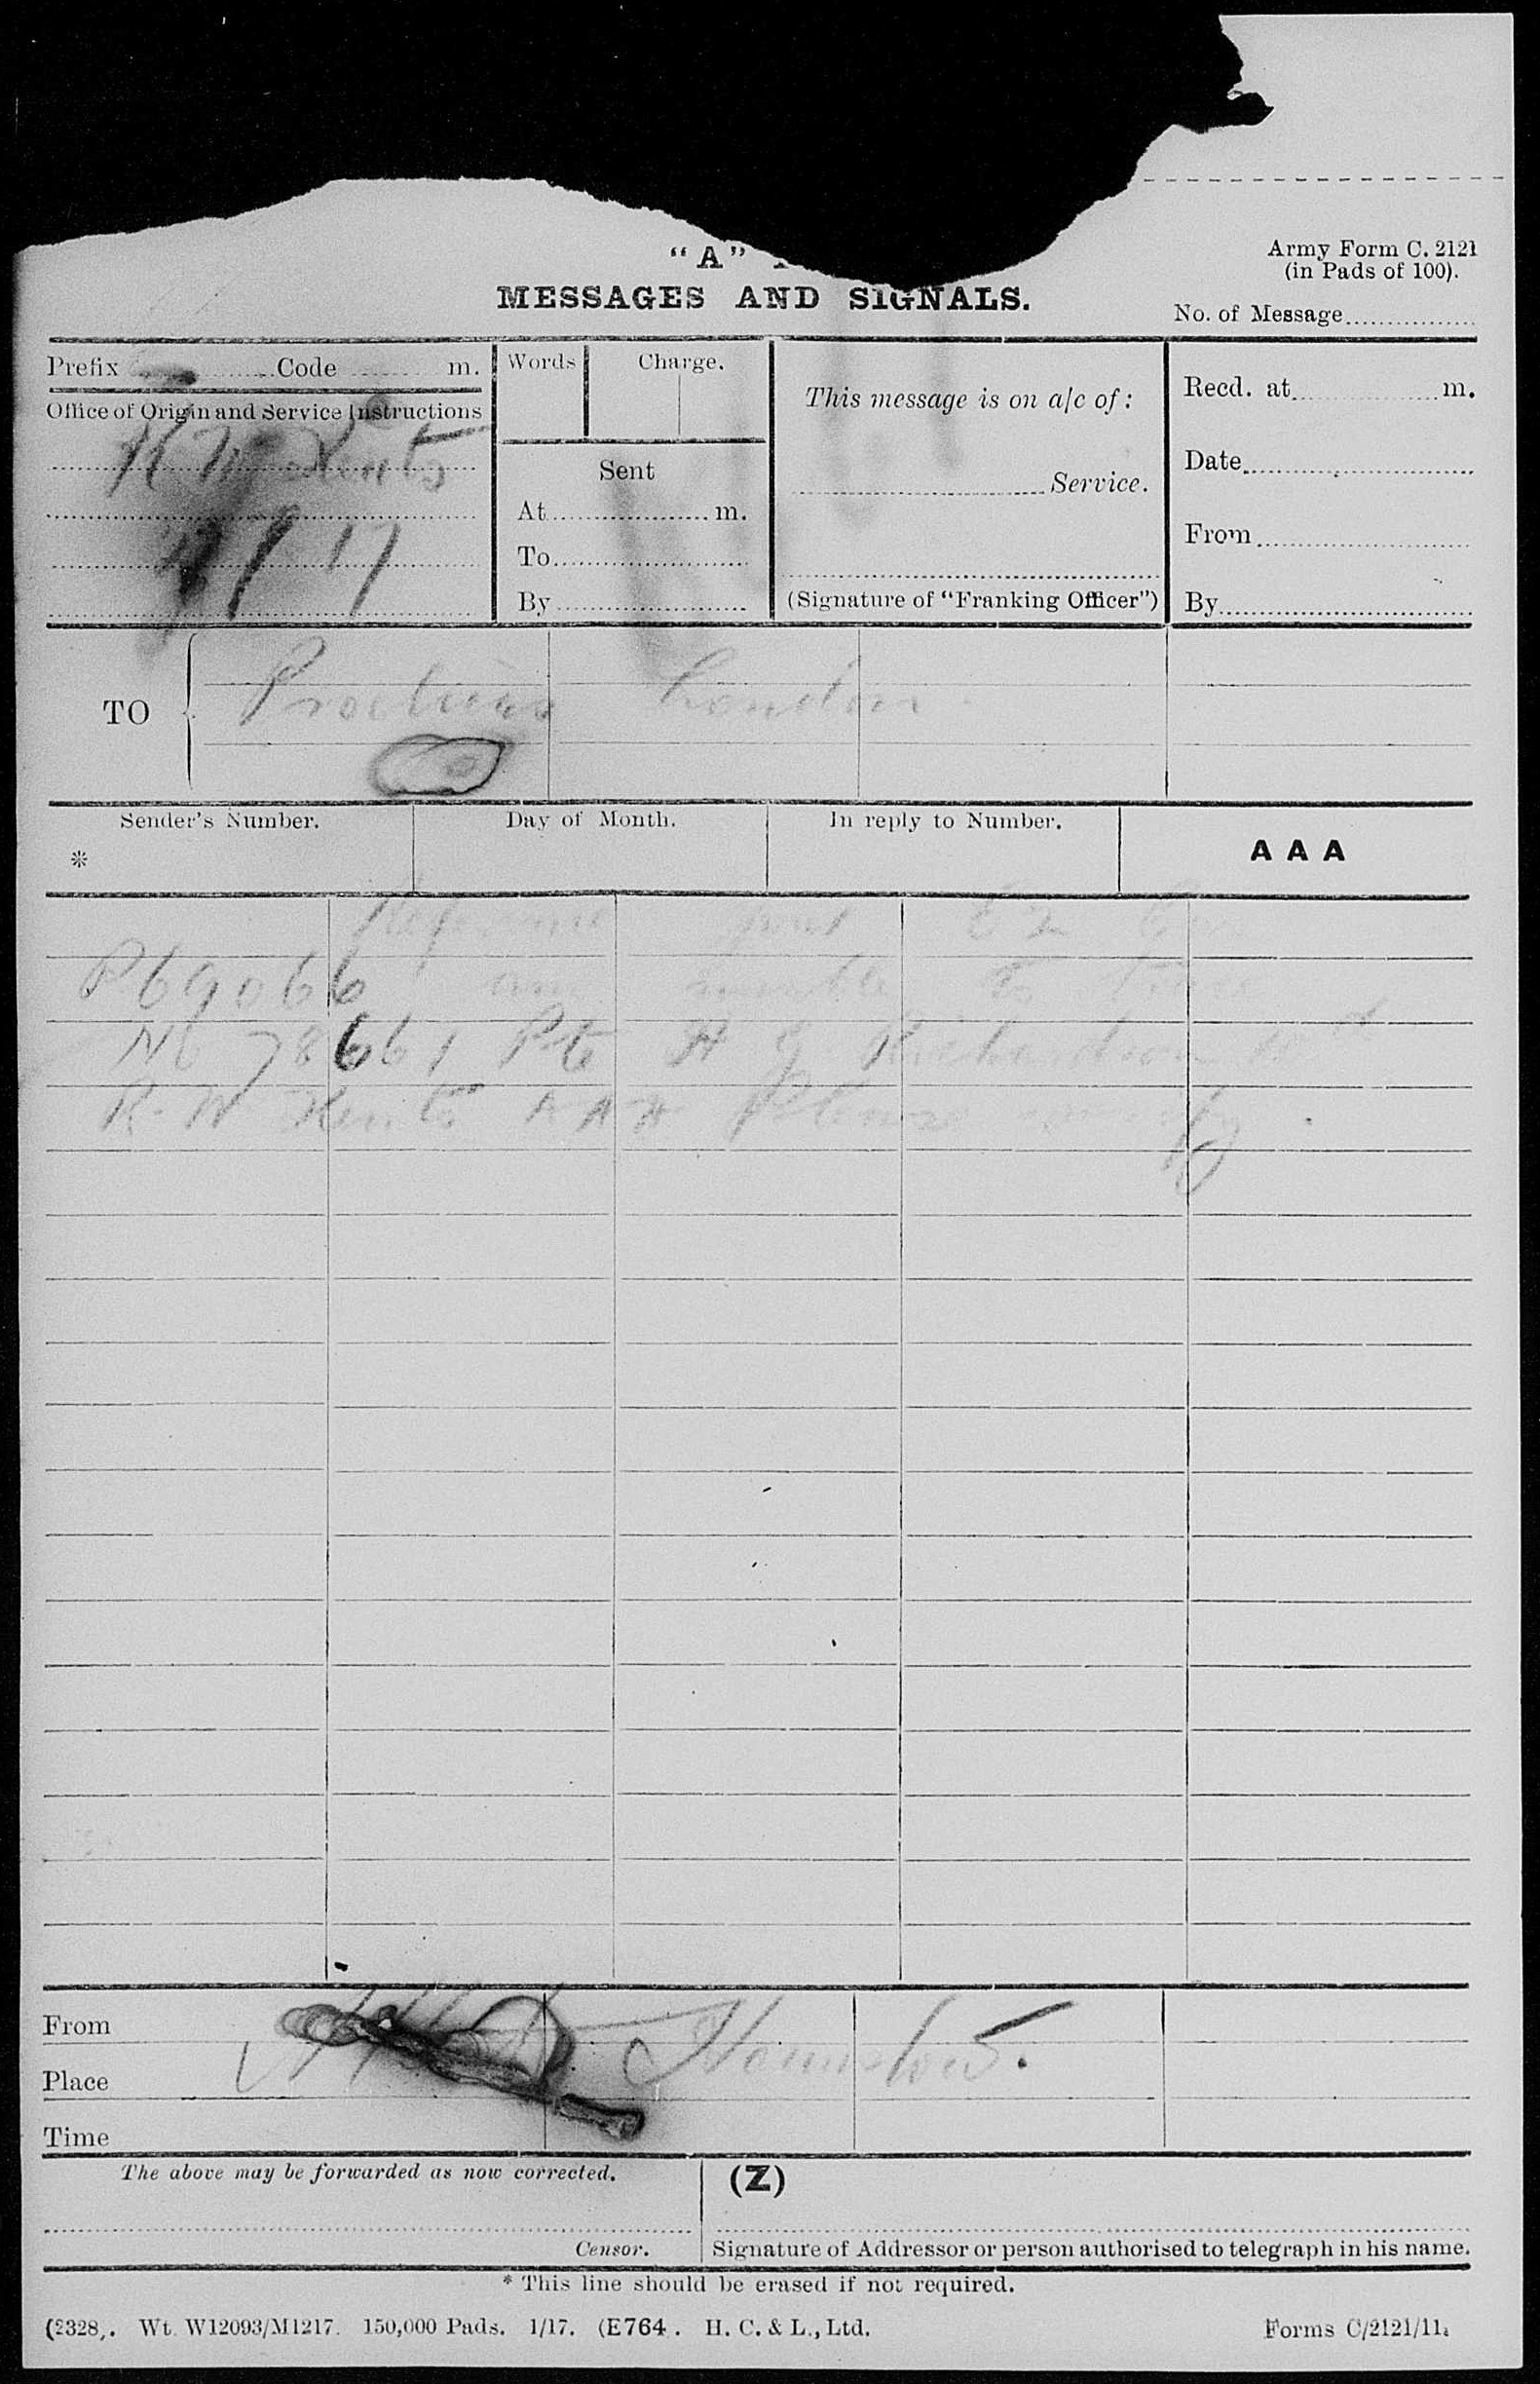 "A"
MESSAGES AND SIGNALS.
Army Form C. 2121
(in Pads of 100).
No. of Message
Prefix Code m.
Office of Origin and Service Instructions
R W Kents
17
Words Charge.
Sent
At m.
To
By
This message is on a/c of:
Service.
(Signature of "Franking Officer")
Recd. at m.
Date
From
By
TO
London
Sender's Number.
Day of Month.
In reply to Number.
AAA
*
Reference your E2
P69066 am unable to trace
No 78661 Pte H G Richardson
R. W Kents AAA Please verify
From
Place
Hounslow.
Time
The above may be forwarded as now corrected.
(Z)
Censor.
Signature of Addressor or person authorised to telegraph in his name.
* This line should be erased if not required.
(2328). Wt. W12093/M1217. 150,000 Pads. 1/17. (E764. H. C. & L., Ltd.
Forms C/2121/11.